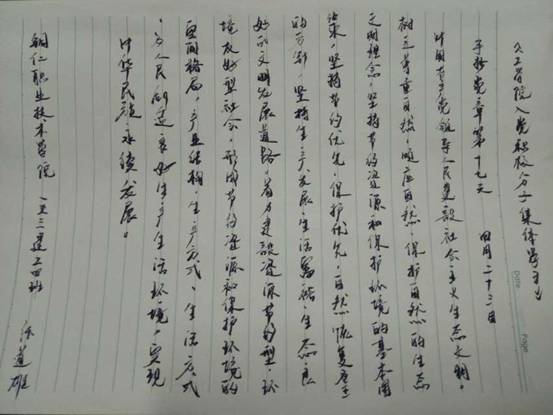 工学院入党积极分子集体学习
手抄党章第十七天 四月二十三日
中国共产党领导人民建设社会主义生态文明。
树立尊重自然、顺应自然、保护自然的生态
文明理念,坚持节约资源和保护环境的基本国
策,坚持节约优先、保护优先、自然恢复为主
的方针,坚持生产发展、生活富裕、生态良
好的文明发展道路。着力建设资源节约型、环
境友好型社会,形成节约资源和保护环境的
空间格局、产业结构、生产方式、生活方式
,为人民创造良好生产生活环境,实现
中华民族永续发展。
铜仁职业技术学院 建工四班
道雄
Date
Page